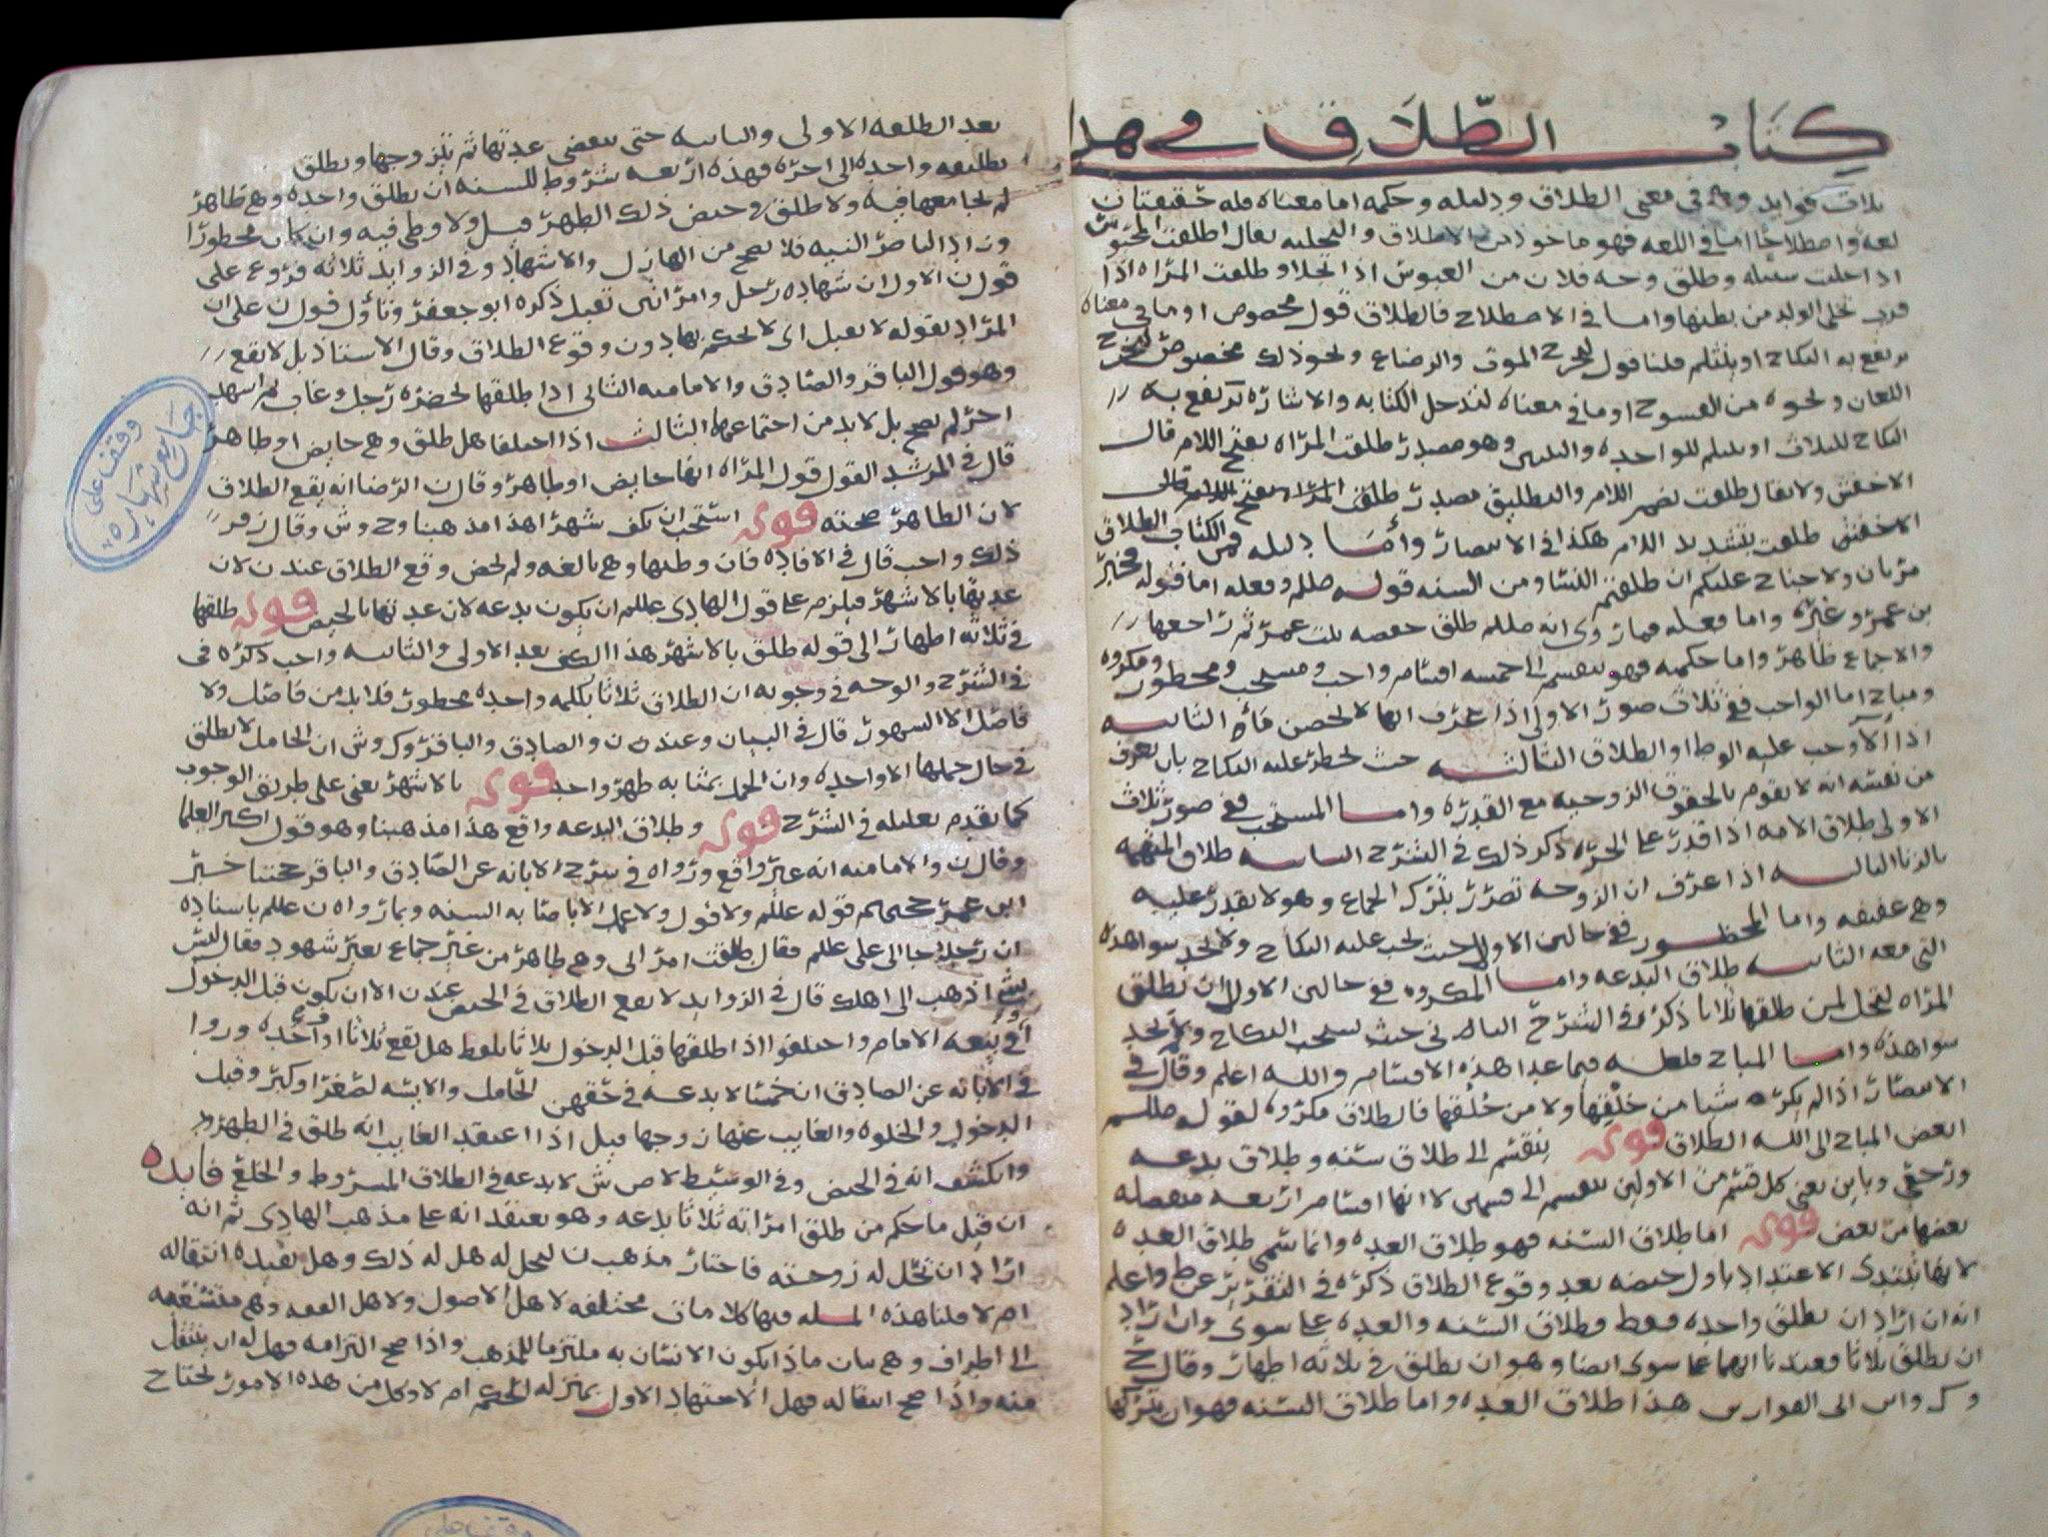 كتاب الطلاق في هدا
ثلاث فوايد وهي في معنى الطلاق ودليله وحكمه اما معناه فله حقيقتان
لغه واصطلاحا اما في اللغه فهو ماخوذ من الاطلاق والتخليه يقال اطلقت المحبوس
اذا خليت سبيله وطلق وجه فلان من العبوس اذا تجلا وطلقت المراه اذا
قرب تخلي الولد من بطنها واما في الاصطلاح فالطلاق قول مخصوص او ما في معناه
يرتفع به النكاح او ينثلم قلنا قول ليخرج الموت والرضاع ونحو ذلك مخصوص ليخرج
اللعان ونحوه من الفسوخ او ما في معناه لتدخل الكتابه والاشاره يرتفع به
النكاح للثلاث او ينثلم للواحده والثنتين وهو مصدر طلقت المراه بفتح اللام قال
الاخفش ولا يقال طلقت بضم اللام والتطليق مصدر طلقت المراه بفتح اللام قال
الاخفش طلقت بتشديد اللام هكذا في الانتصار وأما دليله فمن الكتاب الطلاق
مرتان ولا جناح عليكم ان طلقتم النسا ومن السنه قوله صللم وفعله اما قوله فخبر
بن عمر وغيره واما فعله فما روي انه صللم طلق حفصه بنت عمر ثم راجعها
والاجماع ظاهر واما حكمه فهو ينقسم الى خمسه اقسام واجب ومستحب ومحظور ومكروه
ومباح اما الواجب ففي ثلاث صور الاولى اذا عرف انها لا تحصن فاه الثانيه
اذا آلا وجب عليه الوطا او الطلاق الثالثه حيث يحظر عليه النكاح بان يعرف
من نفسه انه لا يقوم بالحقوق الزوجيه مع القدره واما المستحب ففي صور ثلاث
الاولى طلاق الامه اذا قدر على الحره ذكر ذلك في الشرح الثانيه طلاق المتهمه
بالزنا الثالثه اذا عرف ان الزوجه تضرر بترك الجماع وهو لا يقدر عليه
وهي عفيفه واما المحظور ففي حالين الاول حيث يجب عليه النكاح ولا يجد سوا هذه
التي معه الثانيه طلاق البدعه واما المكروه ففي حالين الاول ان يطلق
المراه لتحل لمن طلقها ثلاثا ذكره في الشرح الثاني حيث يستحب النكاح ولا يجد
سوا هذه واما المباح فلعله فيما عدا هذه الاقسام والله اعلم وقال في
الانتصار اذا لم يكره شيا من خلقها ولا من خُلُقها فالطلاق مكروه لقوله صللم
ابغض المباح الى الله الطلاق قوله ينقسم الى طلاق سنه وطلاق بدعه
ورجعي وباين يعني كل قسم من الاولين ينقسم الى قسمين لا انها اقسام اربعه منفصله
بعضها من بعض قوله اما طلاق السنه فهو طلاق العده وانما سمي طلاق العده
لانها تبتدى الاعتداد باول حيضه بعد وقوع الطلاق ذكره في التقرير عن ط واعلم
انه ان اراد ان يطلق واحده فقط فطلاق السنه والعده على سوى وان اراد
ان يطلق ثلاثا فعندنا انهما على سوى ايضا وهو ان يطلق في ثلاثه اطهار وقال ح
وك واس الى الفوارس هذا طلاق العده واما طلاق السنه فهو ان يتركها
بعد الطلقه الاولى والثانيه حتى تنقضي عدتها ثم يتزوجها ويطلق
تطليقه واحده الى اخره فهذه اربعه شروط للسنه ان يطلق واحده وهي طاهر
لم يجامعها فيه ولا طلق في حيض ذلك الطهر قبل ولا وطي فيه وان كان محظورا
وزاد الناصر النيه فلا يصح من الهازل والاشهاد وفي الزوايد ثلاثه فروع على
قول ن الاول ان شهاده رجل وامراتين تقبل ذكره ابو جعفر وتأول قول ن على ان
المراد بقوله لا تقبل اي لا يحكم بها دون وقوع الطلاق وقال الاستاذ بل لا يقع
وهو قول الباقر والصادق والاماميه الثاني اذا طلقها بحضره رجل وغاب ثم اشهد
اخر لم يصح بل لا بد من اجتماعهما الثالث اذا اختلفا هل طلق وهي حايض او طاهر
قال في المرشد القول قول المراه انها حايض او طاهر وقال ن الرضا انه يقع الطلاق
لان الظاهر صحته قوله استحب ان يكف شهرا هذا مذهبنا وح وش وقال زفر
ذلك واجب قال في الافاده فان وطئها وهي بالغه ولم تحض وقع الطلاق عند ن لان
عدتها بالاشهر فيلزم على قول الهادي عللم ان يكون بدعه لان عدتها بالحيض قوله طلقها
في ثلاثه اطهار الى قوله طلق بالاشهر هذا الكف بعد الاولى والثانيه واجب ذكره في
في الشرح والوجه في وجوبه ان الطلاق ثلاثا بكلمه واحده محظور فلا بد من فاصل ولا
فاصل الا الشهور قال في البيان وعند ن والصادق والباقر وك وش ان الحامل لا تطلق
في حال حملها الا واحده وان الحمل بمثابه طهر واحد قوله بالاشهر يعني على طريق الوجوب
كما تقدم تعليله في الشرح قوله وطلاق البدعه واقع هذا مذهبنا وهو قول اكثر العلما
وقال ن والاماميه انه غير واقع ورواه في شرح الابانه عن الصادق والباقر حجتنا خبر
ابن عمر حجتهم قوله عللم ولا قول ولا عمل الا باصابه السنه وبما رواه ن عللم باسناده
ان رجلا جا الى علي عللم فقال طلقت امراتي وهي طاهر من غير جماع بغير شهود فقال ليس
بشي اذهب الى اهلك قال في الزوايد لا يقع الطلاق في الحيض عند ن الا ان يكون قبل الدخول
او بيّنه الامام واختلفوا اذا طلقها قبل الدخول ثلاثا بلفظ هل تقع ثلاثا او واحده وروا
في الابانه عن الصادق ان خمسا لا بدعه في حقهن الحامل والايسه لصغر او كبر وقبل
الدخول والخلوه والغايب عنها زوجها قبل اذا اعتقد الغايب انه طلق في الطهر
وانكشف انه في الحيض وفي الوسيط لاص ش لا بدعه في الطلاق المشروط والخلع فايده
ان قيل ما حكم من طلق امراته ثلاثا بدعه وهو يعتقد انه على مذهب الهادي ثم انه
اراد ان تحل له زوجته فاختار مذهب ن ليحل له هل له ذلك وهل يفيده انتقاله
ام لا قلنا هذه المسله فيها كلامات مختلفه لاهل الاصول ولاهل الفقه وهي متشعبه
الى اطراف وهي بيان ماذا يكون الانسان به ملتزما للمذهب واذا صح التزامه فهل له ان ينتقل
عنه واذا صح انتقاله فهل الاجتهاد الاول بمنزله الحكم ام لا وكل من هذه الامور تحتاج
وقف على
جامع شهاره